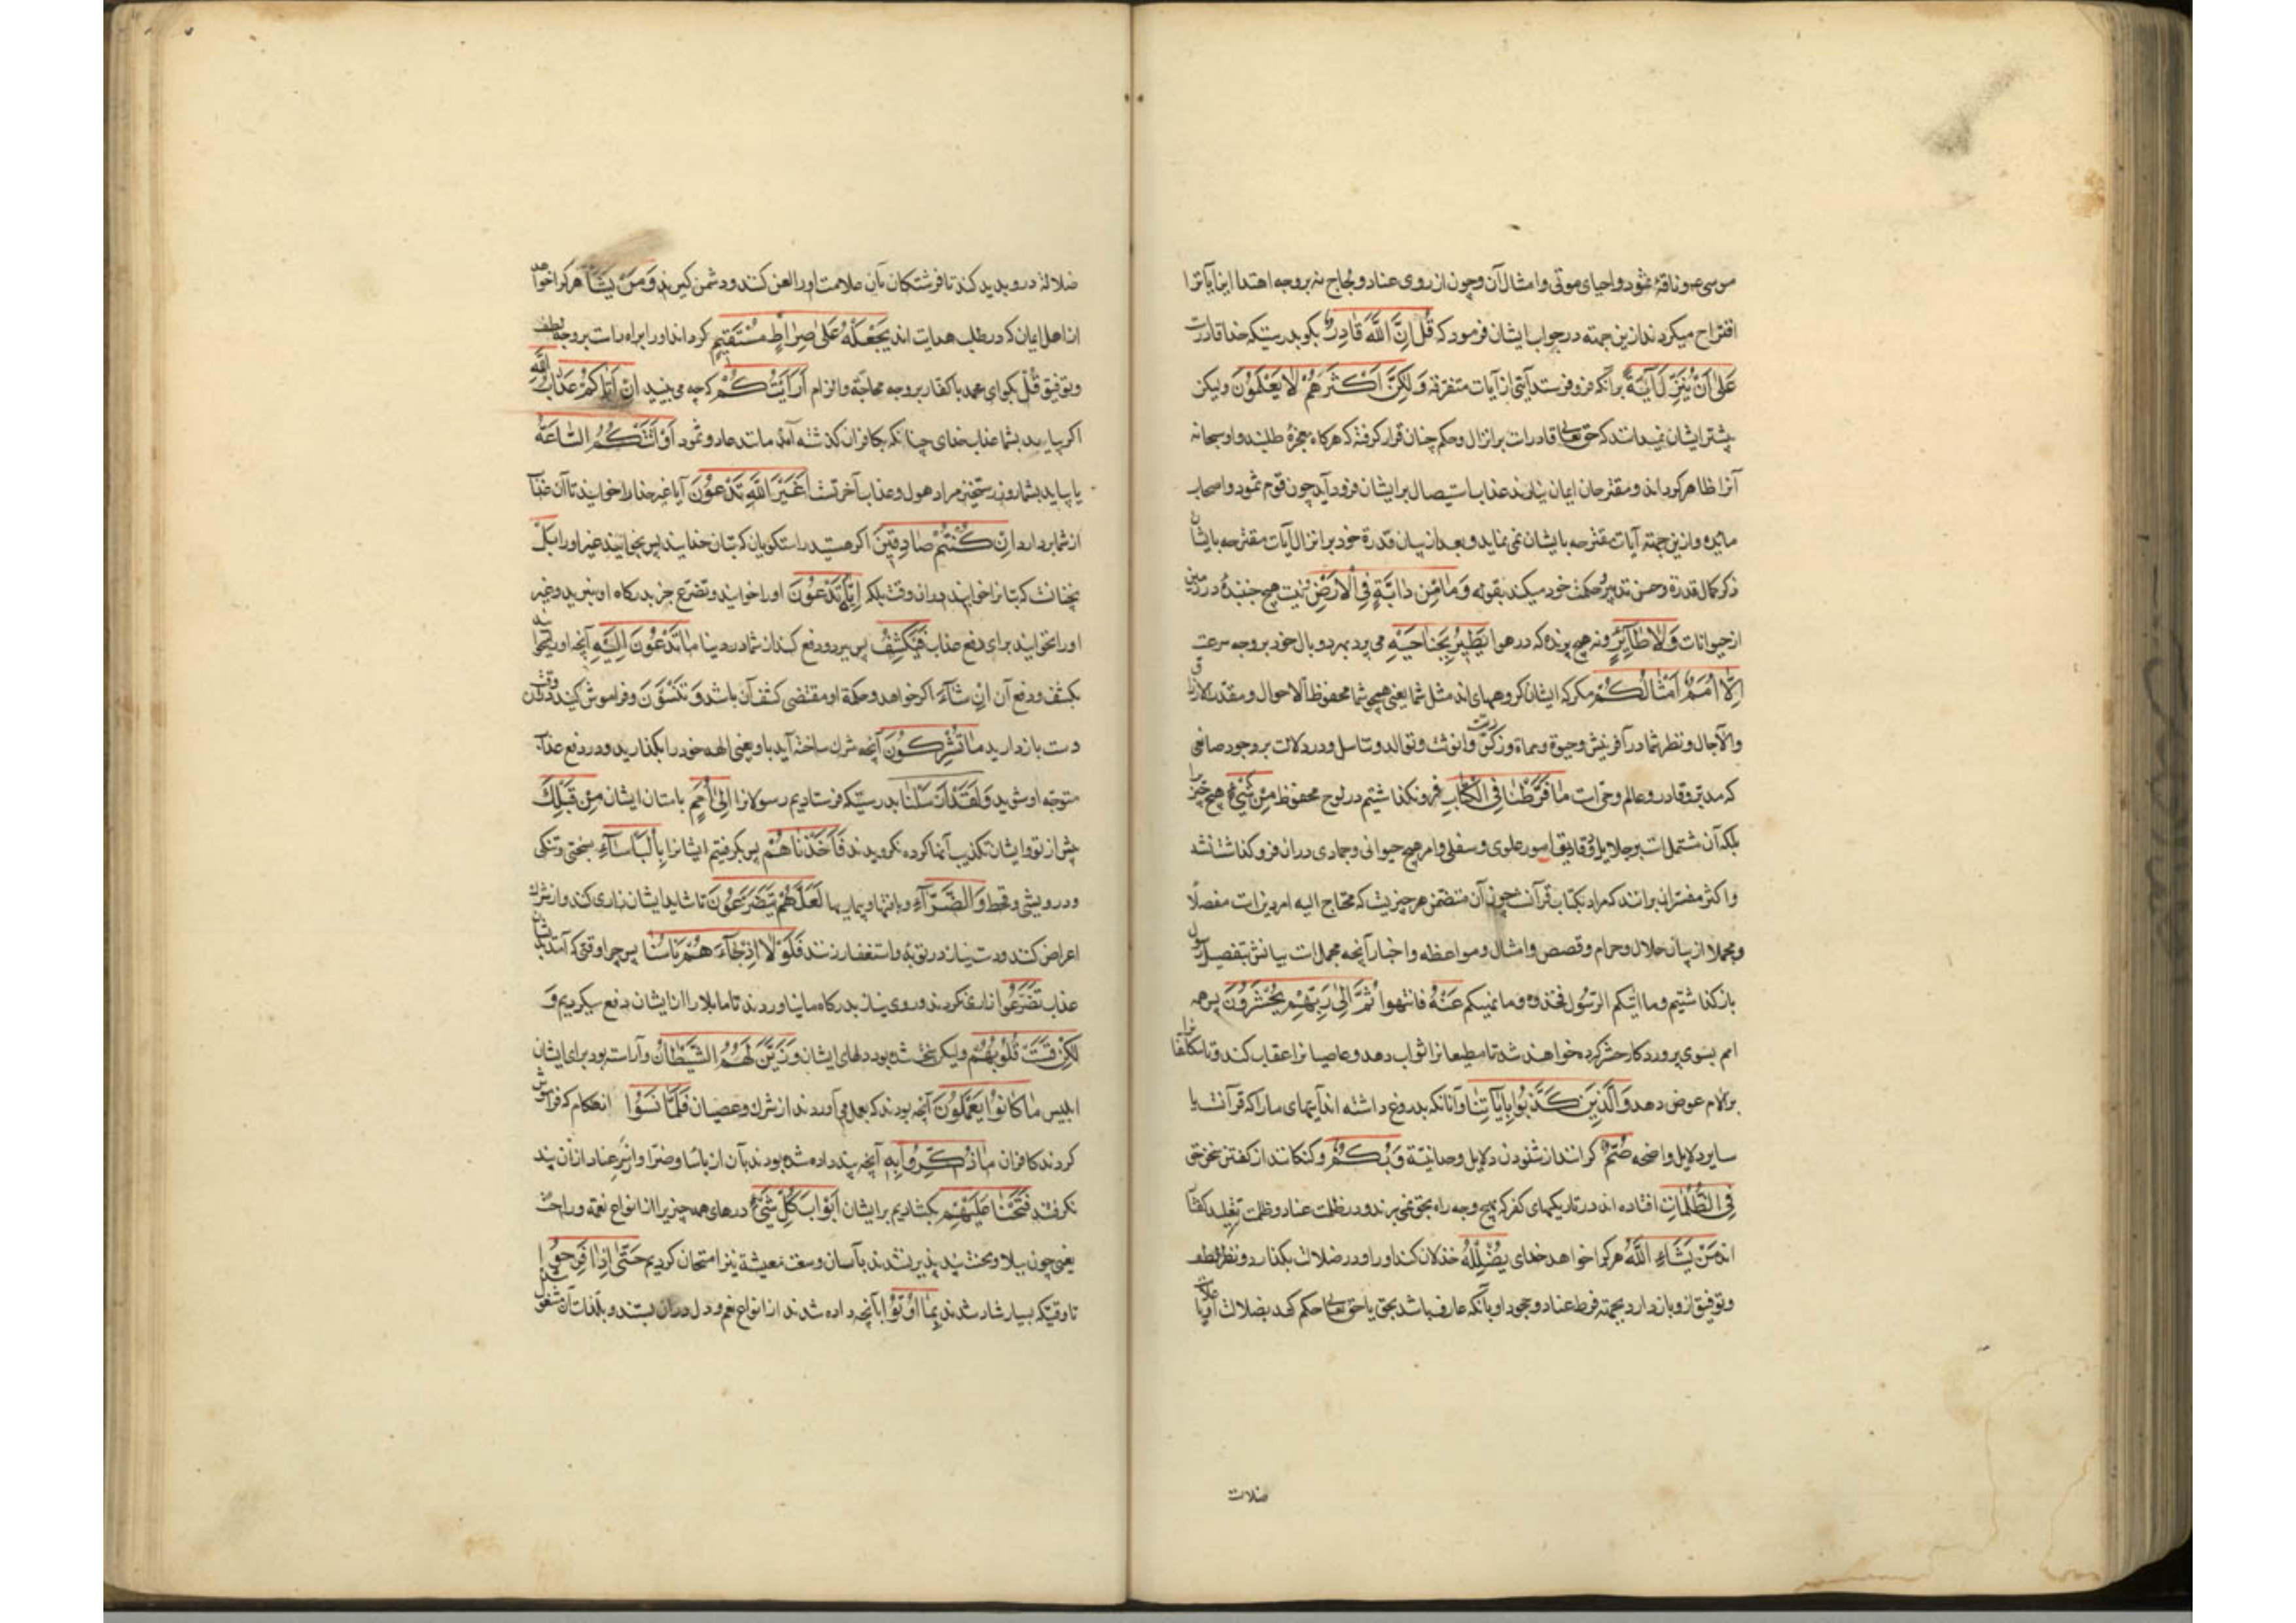 موسی ع و ناقهٔ ثمود و احیای موتی و امثال آن و چون از روی عناد و لجاج نه بروجه اهتدا این آیاترا
اقتراح میکردند ازین جهته در جواب ایشان فرمود که قُلْ اِنَّ اللّٰهَ قَادِرٌ بکو بدرستیکه خدا قادرست
عَلٰی اَنْ یُنَزِّلَ اٰیَةً برآنکه فرو فرستد آیتی از آیات متفرقه وَلٰکِنَّ اَکْثَرَهُمْ لَا یَعْلَمُونَ ولیکن
بیشتر ایشان نمیدانند که حق تعالی قادرست بر انزال و حکم چنان قرار کرفته که هرکاه معجزهٔ طلبند و او سبحانه
آنرا ظاهر کرداند و مقترحان ایمان نیارند عذاب استیصال بر ایشان فرود آید چون قوم ثمود و اصحاب
مائده و ازین جهته آیات مقترحه بایشان نمی نماید و بعد از بیان قدرة خود بر انزال آیات مقترحه بایشان
ذکر کمال قدرة و حسن تدبیر و حکمت خود میکند بقوله وَمَا مِنْ دَابَّةٍ فِی الْاَرْضِ و نیست هیچ جنبندهٔ در زمین
از حیوانات وَلَا طَآئِرٍ و نه هیچ پرنده که در هوا یَطِیرُ بِجَنَاحَیْهِ می پرد بهر دو بال خود بروجه سرعت
اِلَّا اُمَمٌ اَمْثَالُکُمْ مکر که ایشان کروههای اند مثل شما یعنی همچو شما محفوظ الاحوال و مقدر الارزاق
والآجال و نظر شما در آفرینش و حیوة و مماة و ذکورت و انوثت و توالد و تناسل و در دلالت بر وجود صانعی
که مدبر و قادر و عالم و حی است مَا فَرَّطْنَا فِی الْکِتَابِ فرو نکذاشتیم در لوح محفوظ مِنْ شَیْءٍ هیچ چیز را
بلکه آن مشتمل است بر جلایل و دقایق امور علوی و سفلی و امر هیچ حیوانی و جمادی دران فرو کذاشته نشد
و اکثر مفسران برانند که مراد بکتاب قرآنست چون آن متضمن هر چیزیست که محتاج الیه امر دین است مفصلًا
و مجملا از بیان حلال و حرام و قصص و امثال و مواعظه و اخبار و آنچه مجمل است بیانش بتفصیل رسول
باز کذاشتیم و ما اتیکم الرسول فخذوه و ما نهیکم عَنْهُ فانتهوا ثُمَّ اِلٰی رَبِّهِمْ یُحْشَرُونَ پس همه
امم بسوی پروردکار حشر کرده خواهند شد تا مطیعانرا ثواب دهد و عاصیانرا عقاب کند و تا مکلفانرا
برالام عوض دهد وَالَّذِینَ کَذَّبُوا بِاٰیَاتِنَا و آنانکه بدروغ داشته اند آیتهای ما را که قرآنست یا
سایر دلایل واضحه صُمٌّ کرانند از شنودن دلایل وحدانیة وَبُکْمٌ و کنکانند از کفتن سخن حق
فِی الظُّلُمَاتِ افتاده اند در تاریکیهای کفر که بهیچ وجه راه بحق نمی برند و در ظلمت عناد و ظلمت تقلید کفتار
اند مَنْ یَشَاءِ اللّٰهُ هرکرا خواهد خدای یُضْلِلْهُ خذلان کند او را و در ضلالت بکذارد و نظر لطف
و توفیق ازو باز دارد بجهته فرط عناد و جحود او باآنکه عارف باشد بحق یا حق تعالی حکم کند بضلالت او یا علامت
ضلالت
ضلالة درو پدید کند تا فرشتکان بآن علامت او را لعن کنند و دشمن کیرند وَمَنْ یَشَأْ هرکرا خواهد
از اهل ایمان که در طلب هدایت اند یَجْعَلْهُ عَلٰی صِرَاطٍ مُسْتَقِیمٍ کرداند او را براه راست بروجه لطف
و توفیق قُلْ بکو ای محمد با کفار بروجه محاجّة و الزام اَرَاَیْتَکُمْ که چه می بینید اِنْ اَتَاکُمْ عَذَابُ اللّٰهِ
اکر بیاید بشما عذاب خدای چنانکه بکافران کذشته آمد مانند عاد و ثمود اَوْ اَتَتْکُمُ السَّاعَةُ
یا بیاید بشما روز رستخیز مراد هول و عذاب آخرتست اَغَیْرَ اللّٰهِ تَدْعُونَ آیا غیر خدا را خوانید تا آن عذاب
از شما بردارد اِنْ کُنْتُمْ صَادِقِینَ اکر هستید راستکویان که بتان خدایند پس نخوانید غیر او را بَلْ
نچنانست که بتانرا خوانید دران وقت بلکه اِیَّاهُ تَدْعُونَ او را خوانید و تضرع جز بدرکاه او نبرید و غیر
او را نخوانید برای دفع عذاب فَیَکْشِفُ پس ببرد و رفع کند از شما در دنیا مَا تَدْعُونَ اِلَیْهِ آنچه او را بخوانید
بکشف و رفع آن اِنْ شَآءَ اکر خواهد و حکمة او مقتضی کشف آن باشد وَتَنْسَوْنَ و فراموش کنید دران وقت
دست بازدارید مَا تُشْرِکُونَ آنچه شرک ساخته آید با و یعنی الهه خود را بکذارید و در رفع عذاب
متوجه او شوید وَلَقَدْ اَرْسَلْنَا بدرستیکه فرستادیم رسولانرا اِلٰی اُمَمٍ بامتان ایشان مِنْ قَبْلِکَ
پیش از تو و ایشان تکذیب آنها کرده نکرویدند فَاَخَذْنَاهُمْ پس بکرفتیم ایشانرا بِالْبَأْسَآءِ بسختی و تنکی
و درویشی و قحط وَالضَّرَّآءِ و بآفتها و بیماریها لَعَلَّهُمْ یَتَضَرَّعُونَ تا شاید ایشان زاری کنند و از شرک
اعراض کنند و دست نیاز در توبه و استغفار زنند فَلَوْلَا اِذْ جَآءَهُمْ بَأْسُنَا پس چرا وقتی که آمد بدیشان
عذاب تَضَرَّعُوا زاری نکردند و روی نیاز بدرکاه ما نیاوردند تا ما بلا را از ایشان دفع میکردیم وَ
لٰکِنْ قَسَتْ قُلُوبُهُمْ ولیکن سخت شده بود دلهای ایشان وَزَیَّنَ لَهُمُ الشَّیْطَانُ و آراسته بود برای ایشان
ابلیس مَا کَانُوا یَعْمَلُونَ آنچه بودند که بعمل می آوردند از شرک و عصیان فَلَمَّا نَسُوا انهنکام که فراموش
کردند کافران مَا ذُکِّرُوا بِهِ آنچه پند داده شده بودند بآن از بأسا و ضرّا و از سر عناد ازان پند
نکرفتند فَتَحْنَا عَلَیْهِمْ بکشادیم بر ایشان اَبْوَابَ کُلِّ شَیْءٍ درهای همه چیز را از انواع نعمة و راحت
یعنی چون ببلا و محنت پند پذیر نشدند بآسان و سعت معیشة نیز امتحان کردیم حَتّٰی اِذَا فَرِحُوا
تا وقتیکه بسیار شاد شدند بِمَا اُوتُوا بآنچه داده شدند از انواع نعم و دل دران بستند و بلذات آن مشغول شدند